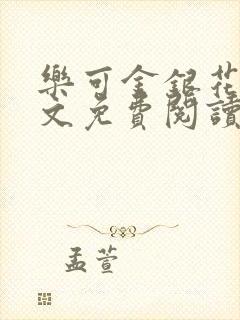 樂可金銀花
文免費閱讀
孟萱